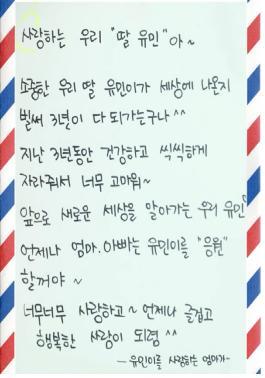 사랑하는 우리 "딸 유민"아~
소중한 우리 딸 유민이가 세상에 나온지
벌써 3년이 다 되가는구나^^
지난 3년동안 건강하고 씩씩하게
자라줘서 너무 고마워~
앞으로 새로운 세상을 알아가는 우리 유민
언제나 엄마.아빠는 유민이를 "응원"
할꺼야~
너무너무 사랑하고~ 언제나 즐겁고
행복한 사람이 되렴^^
- 유민이를 사랑하는 엄마가-